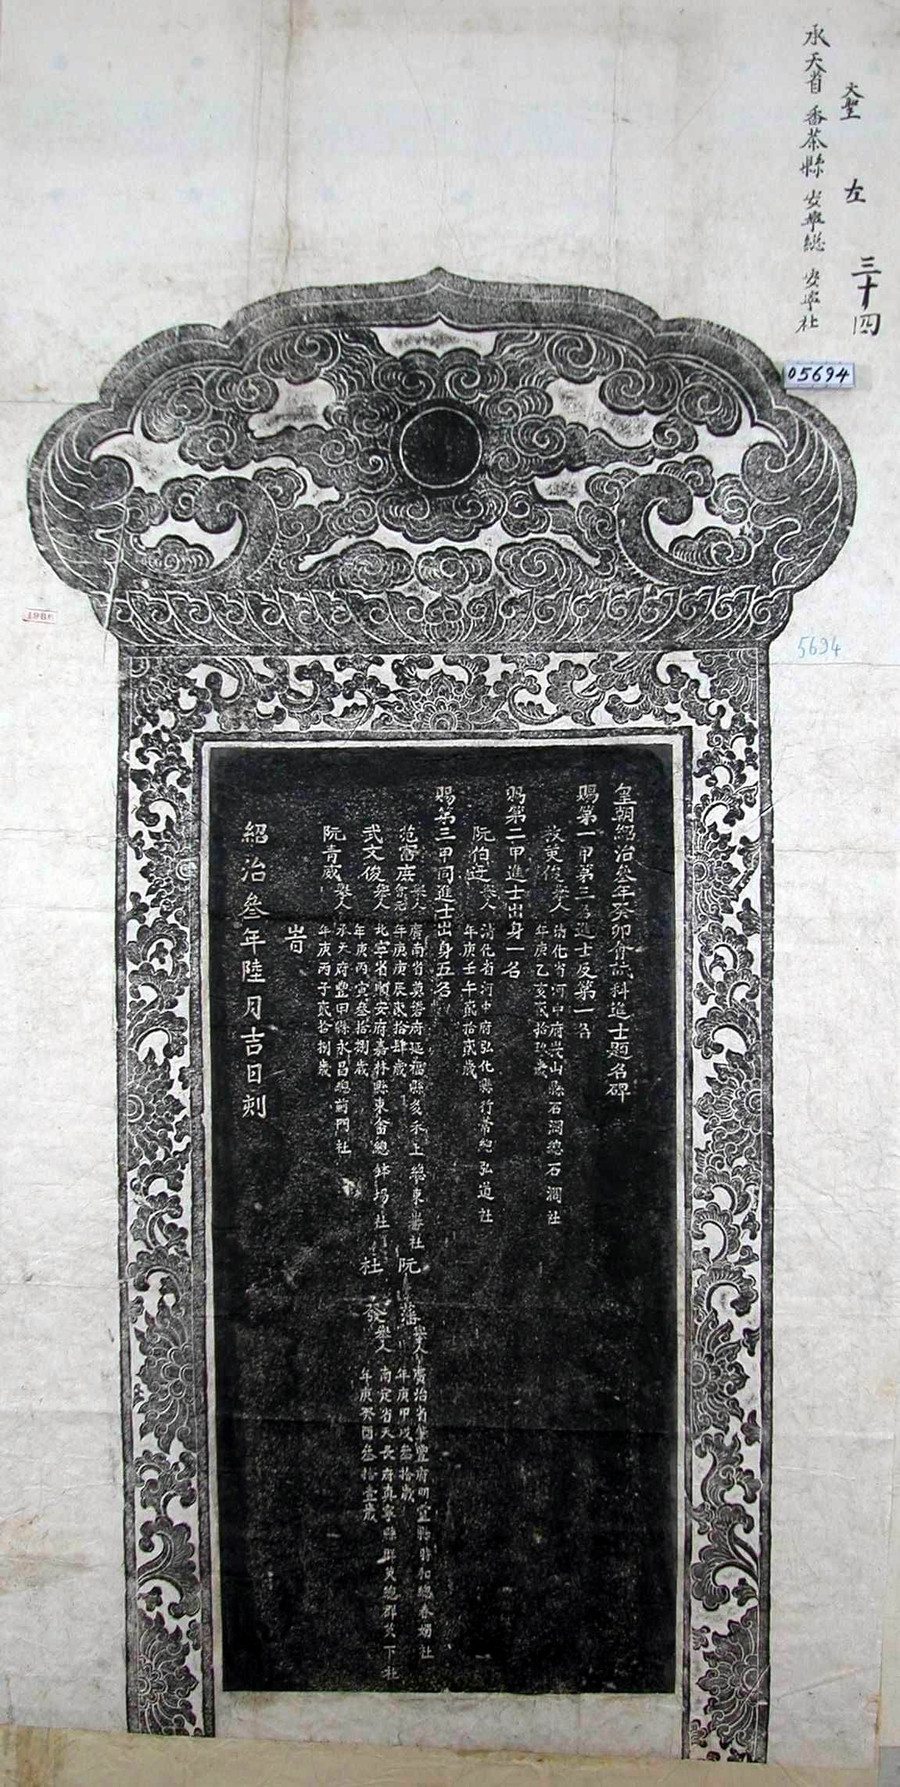 三十四
文聖 左
承天省 香茶縣 安寧總 安寧社
05694
5694
皇朝紹治叁年癸卯會試科進士題名碑
賜第一甲第三名進士及第一名
枚英俊 舉人 清化省河中府峩山縣石澗總石澗社
年庚乙亥貳拾玖歲
賜第二甲進士出身一名
阮伯 舉人 清化省河中府弘化縣行 總弘道社
年庚壬午貳拾貳歲
賜第三甲同進士出身五名
范富庶 舉人 廣南省奠磐府延福縣多禾上總東 社
年庚庚辰貳拾肆歲
武文俊 舉人 北寧省順安府嘉林縣東畬總鉢塲社
年庚丙寅叁拾捌歲
阮青威 舉人 承天府豐田縣永昌總前門社
年庚丙子貳拾捌歲
阮 藩 舉人 廣治省肇豐府明靈縣 和總春 社
年庚甲戌叁拾歲
杜 發 舉人 南定省天長府真寧縣群英總群英下社
年庚癸酉叁拾壹歲
旹
紹治叁年陸月吉日刻